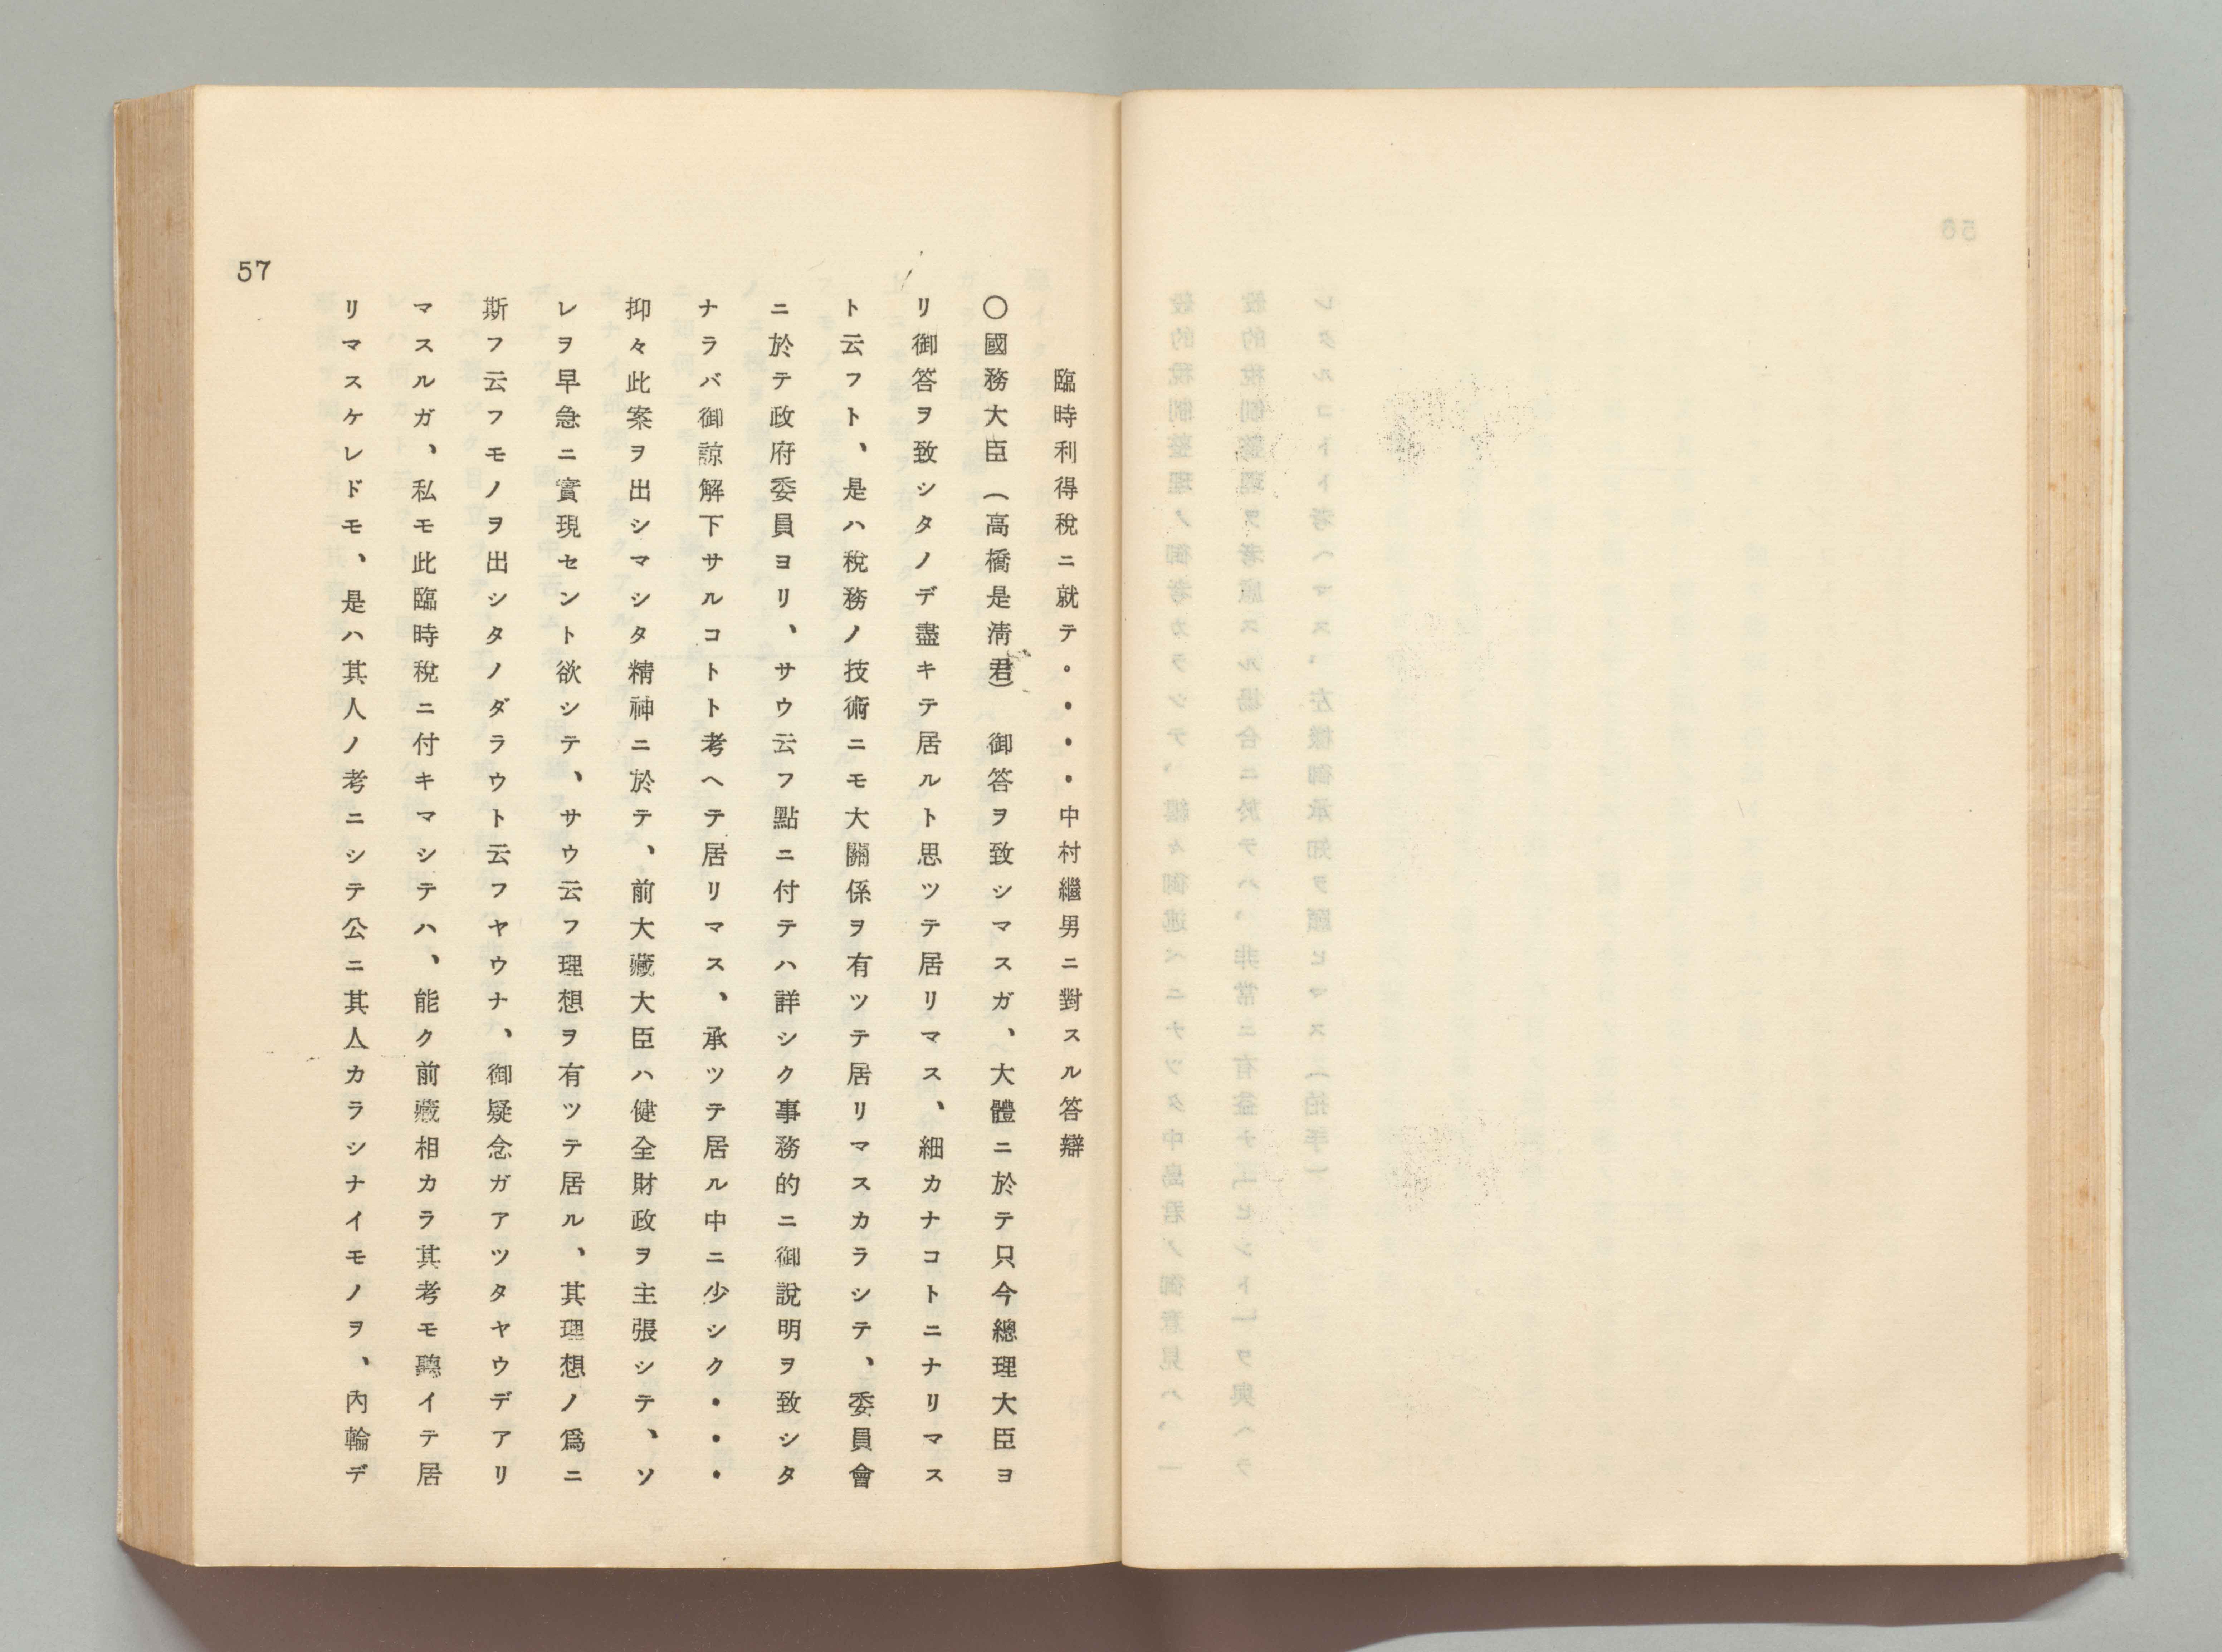 臨時利得稅ニ就テ・・・・中村繼男ニ對スル答辯
〇國務大臣(高橋是淸君) 御答ヲ致シマスガ、大體ニ於テ只今總理大臣ヨ
リ御答ヲ致シタノデ盡キテ居ルト思ツテ居リマス、細カナコトニナリマス
ト云フト、是ハ稅務ノ技術ニモ大關係ヲ有ツテ居リマスカラシテ、委員會
ニ於テ政府委員ヨリ、サウ云フ點ニ付テハ詳シク事務的ニ御說明ヲ致シタ
ナラバ御諒解下サルコトト考ヘテ居リマス、承ツテ居ル中ニ少シク・・・
抑々此案ヲ出シマシタ精神ニ於テ、前大藏大臣ハ健全財政ヲ主張シテ、ソ
レヲ早急ニ實現セント欲シテ、サウ云フ理想ヲ有ツテ居ル、其理想ノ爲ニ
斯フ云フモノヲ出シタノダラウト云フヤウナ、御疑念ガアツタヤウデアリ
マスルガ、私モ此臨時稅ニ付キマシテハ、能ク前藏相カラ其考モ聽イテ居
リマスケレドモ、是ハ其人ノ考ニシテ公ニ其人カラシナイモノヲ、內輪デ
57